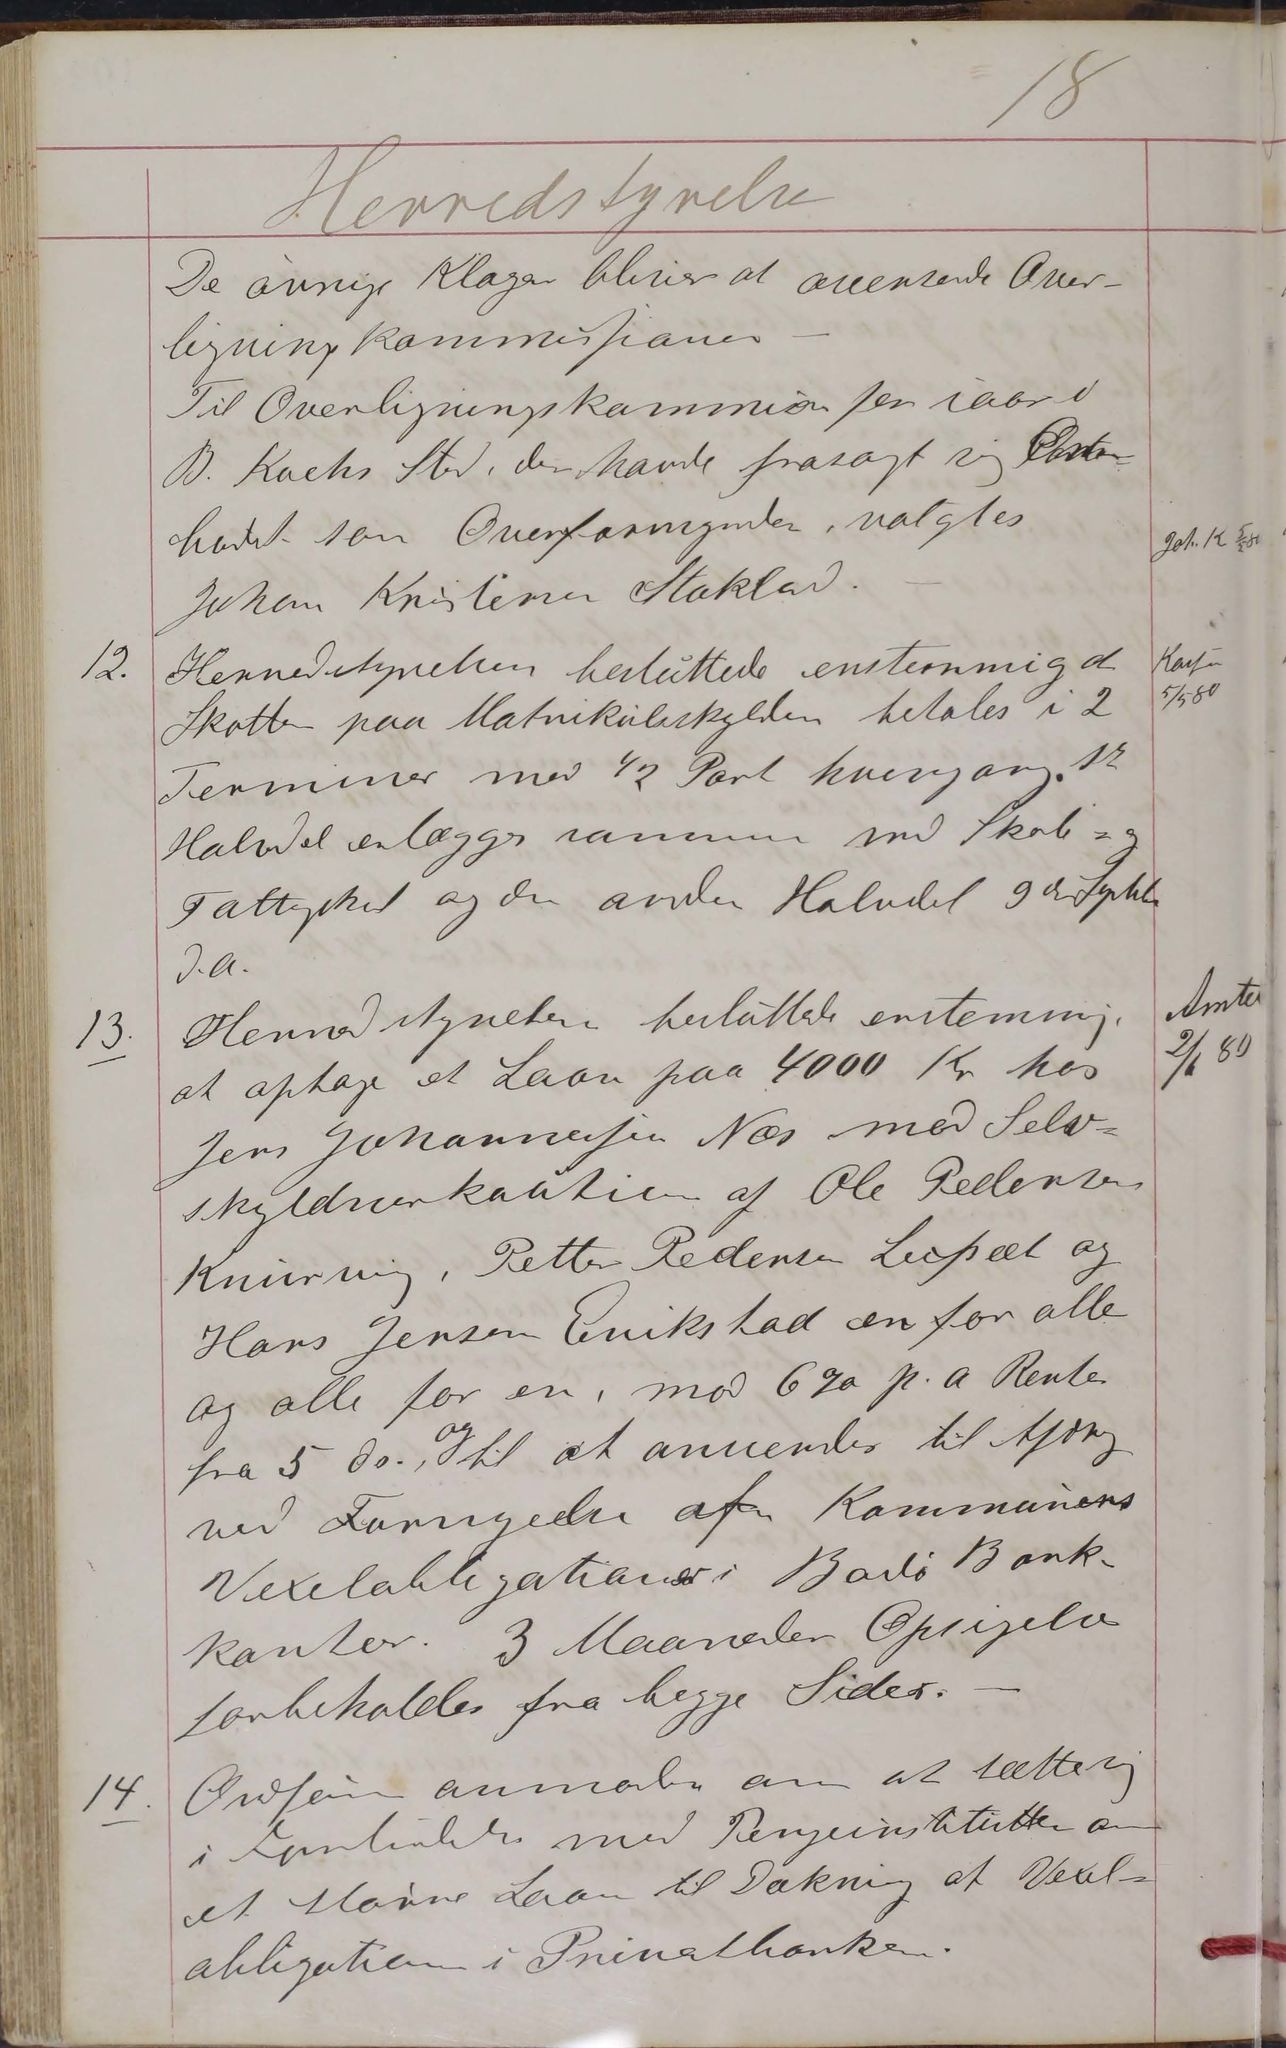 18
Herredstyrelse
De øvrige Klager bliver at oversende Over-
ligningskommissionen —
Til Overligningskommision for iaar i
B. Kochs Sted, der havde frasagt sig
som Overformynder, valgtes
Johan Kristensen Stokland. —
Joh. K
12. Herredstyrelsen besluttede enstemmig at
Skatten paa Matrikulskylden betales i 2
Terminer med 1/2 Part hvergang. 1ste
Halvdel erlægges sammen med Skole- og
Fattigskat og den anden Halvdel 9de Septbr
d.a.
5/5 80
13. Herredstyrelsen besluttede enstemmig,
at optage et Laan paa 4000 Kr hos
Jens Johannesen Næs mod Selv-
skyldnerkaution af Ole Pedersen
Knurvig, Petter Pedersen Leifsæt og
Hans Jensen Enikstad en for alle
og alle for en, mod 6 % p. a Renter
fra 5 ds., og til at anvendes til Afdrag
ved Fornyelse af Kommunens
Vexelobligationer i Bodø Bank-
kontor. 3 Maaneder Opsigelse
forbeholdes fra begge Sider. —
Amtet
2/6 80
14. Ordføreren anmodes om at sætte sig
i Forbindelse med Pengeinstitutter om
et større Laan til Dækning af Vexel-
obligationen i Privatbanken.